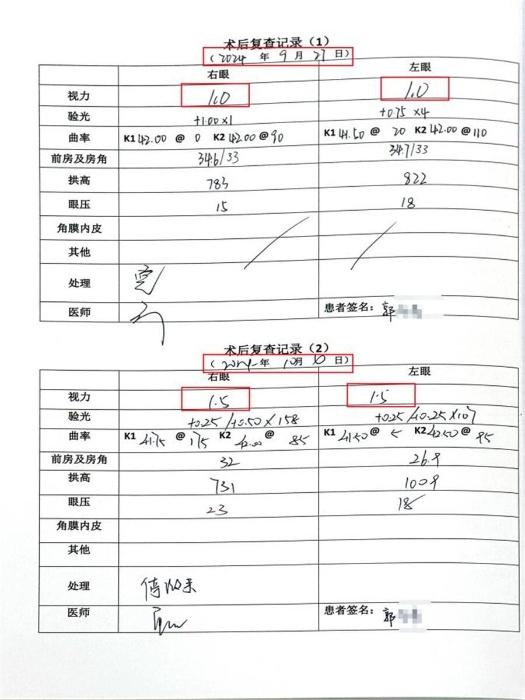 术后复查记录（1）
（2024 年 9 月 27 日）
右眼 左眼
视力 1.0 1.0
验光 +1.00×1 +0.75×4
曲率 K1 42.00 @ 0 K2 42.00 @ 90 K1 41.50 @ 20 K2 42.00 @ 110
前房及房角 34.6/33 34.7/33
拱高 783 822
眼压 15 18
角膜内皮
其他
处理
医师 患者签名：郭
术后复查记录（2）
（2024 年 10月 日）
右眼 左眼
视力 1.5 1.5
验光 +0.25/+0.50×158 +0.25/+0.25×107
曲率 K1 41.75 @ 175 K2 42.00 @ 85 K1 41.50 @ 5 K2 42.50 @ 95
前房及房角 32 26.9
拱高 731 1009
眼压 23 18
角膜内皮
其他
处理 停
医师 患者签名：郭